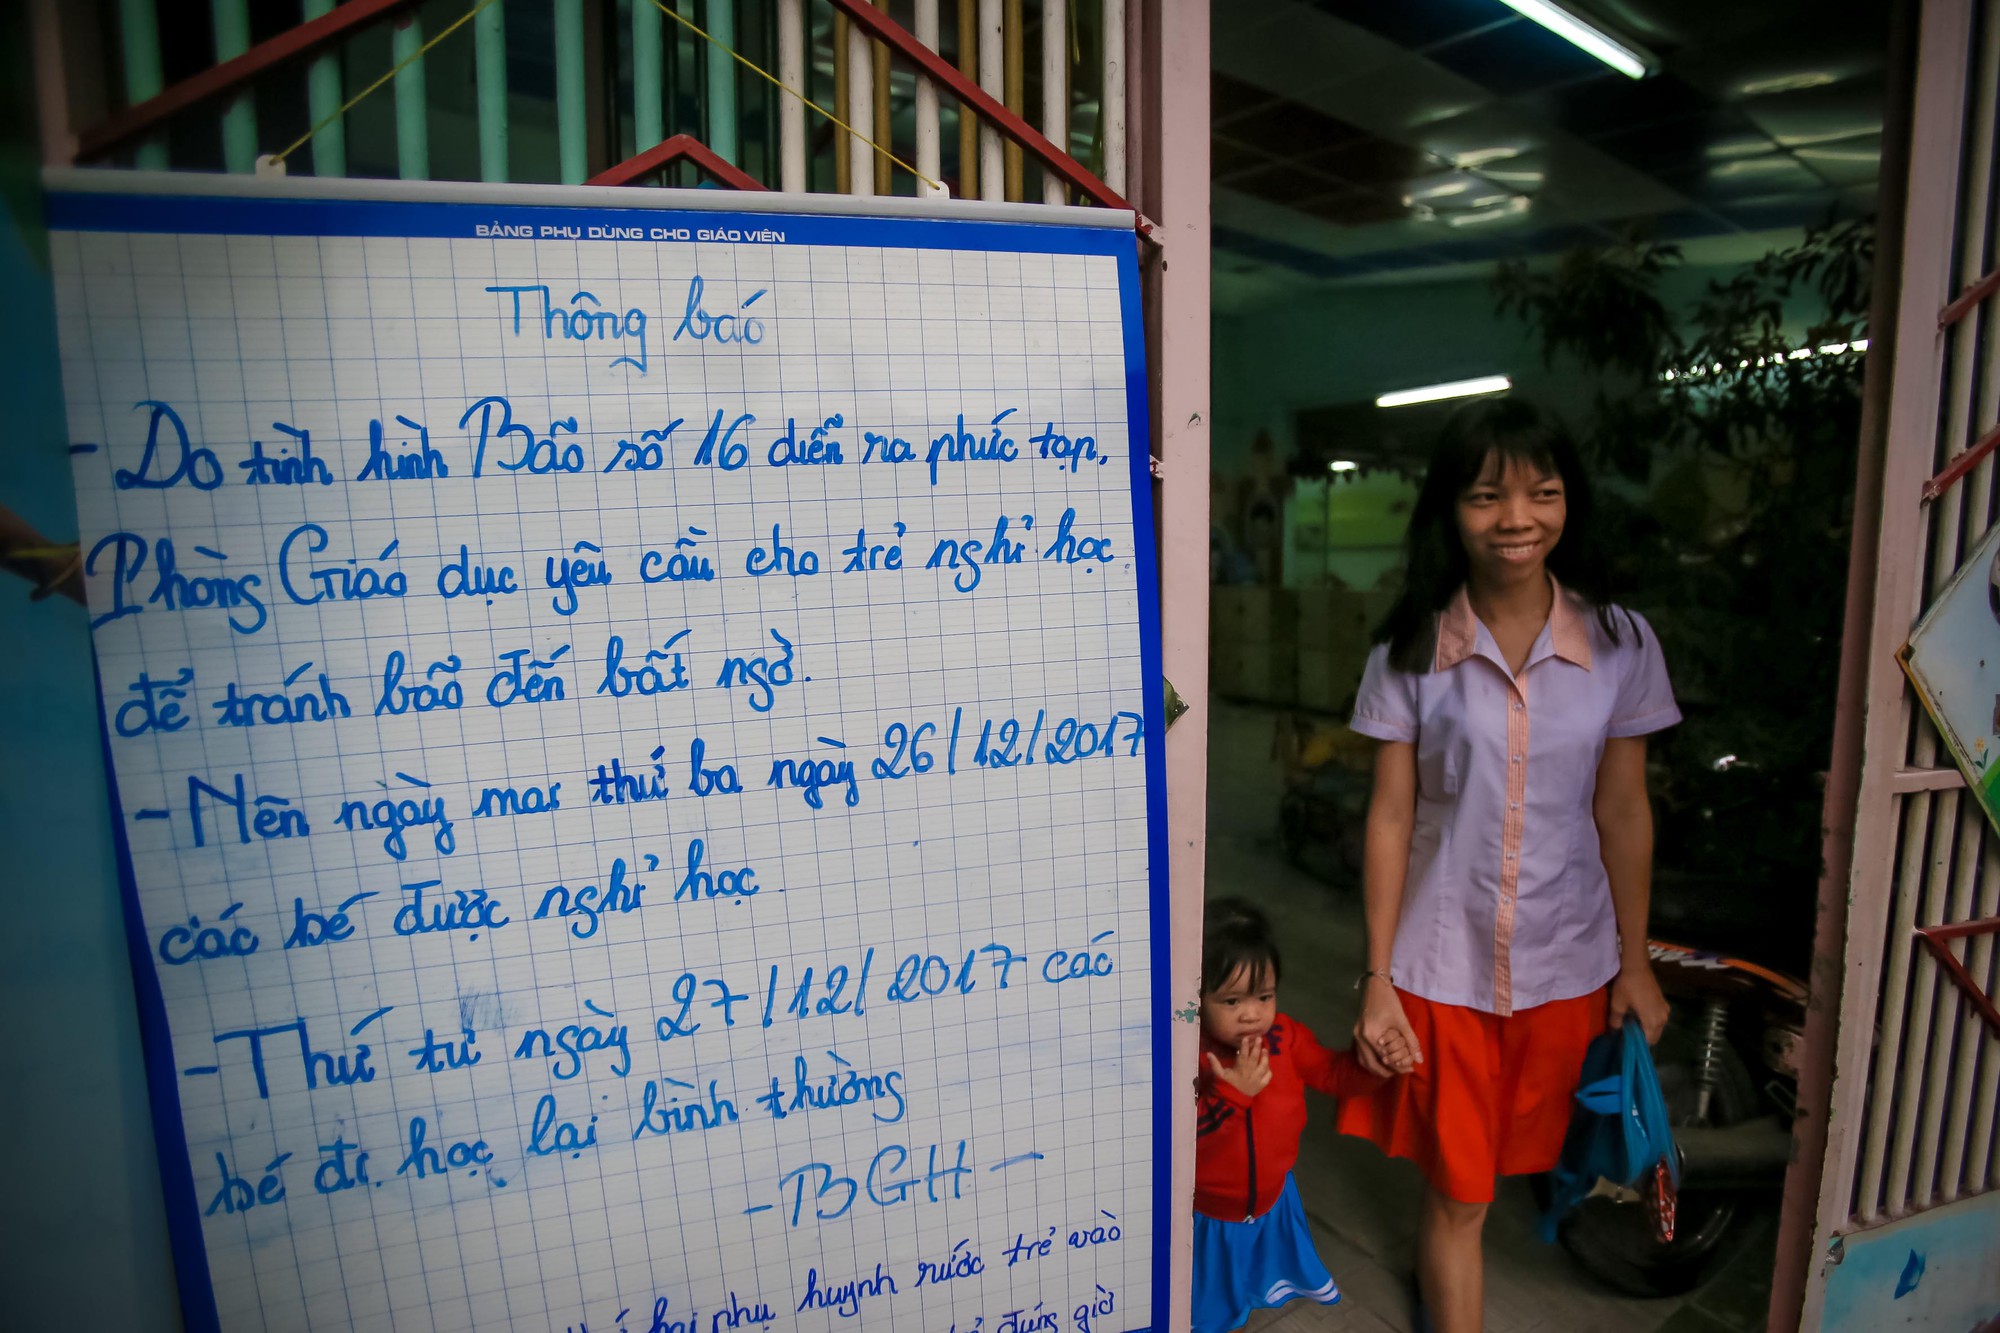 BẢNG PHỤ DÙNG CHO GIÁO VIÊN
Thông báo
- Do tình hình Bão số 16 diễn ra phức tạp.
Phòng Giáo dục yêu cầu cho trẻ nghỉ học
để tránh bão đến bất ngờ.
- Nên ngày mai thứ ba ngày 26/12/2017
các bé được nghỉ học.
- Thứ tư ngày 27/12/2017 các
bé đi học lại bình thường
- BGH -
phụ huynh rước trẻ vào
đúng giờ